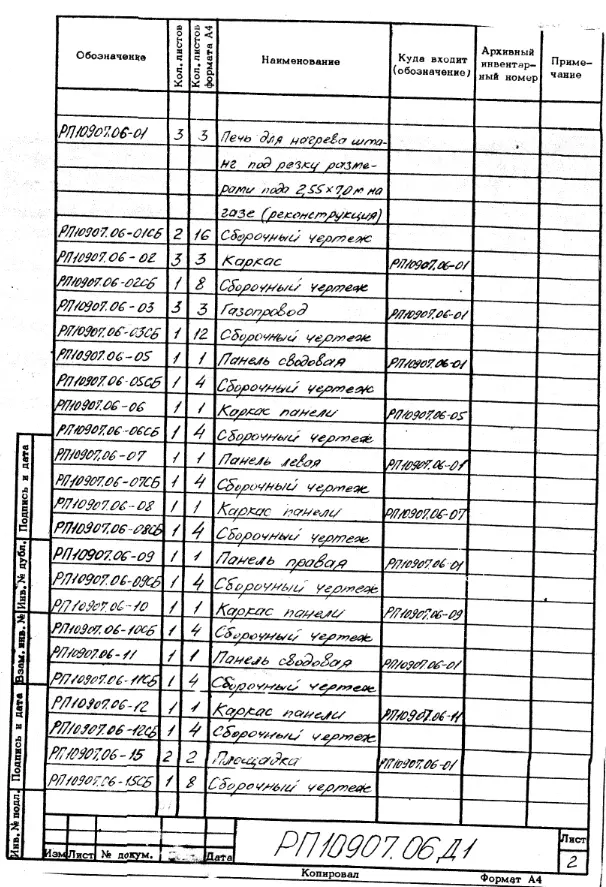 Обозначение Кол. листов Кол. листов формата А4 Наименование Куда входит (обозначение) Архивный инвентар-ный номер Приме-чание
РП10907.06-01 3 3 Печь для нагрева шта-
нг под резку разме-
рами пода 2,55×7,0м на
газе (реконструкция)
РП10907.06-01СБ 2 16 Сборочный чертеж
РП10907.06-02 3 3 Каркас РП10907.06-01
РП10907.06-02СБ 1 8 Сборочный чертеж
РП10907.06-03 3 3 Газопровод РП10907.06-01
РП10907.06-03СБ 1 12 Сборочный чертеж
РП10907.06-05 1 1 Панель сводовая РП10907.06-01
РП10907.06-05СБ 1 4 Сборочный чертеж
РП10907.06-06 1 1 Каркас панели РП10907.06-05
РП10907.06-06СБ 1 4 Сборочный чертеж
РП10907.06-07 1 1 Панель левая РП10907.06-01
РП10907.06-07СБ 1 4 Сборочный чертеж
РП10907.06-08 1 1 Каркас панели РП10907.06-07
РП10907.06-08СБ 1 4 Сборочный чертеж
РП10907.06-09 1 1 Панель правая РП10907.06-01
РП10907.06-09СБ 1 4 Сборочный чертеж
РП10907.06-10 1 1 Каркас панели РП10907.06-09
РП10907.06-10СБ 1 4 Сборочный чертеж
РП10907.06-11 1 1 Панель сводовая РП10907.06-01
РП10907.06-11СБ 1 4 Сборочный чертеж
РП10907.06-12 1 1 Каркас панели РП10907.06-11
РП10907.06-12СБ 1 4 Сборочный чертеж
РП10907.06-15 2 2 Площадка РП10907.06-01
РП10907.06-15СБ 1 8 Сборочный чертеж
Подпись и дата
Инв. № дубл.
Взам. инв. №
Подпись и дата
Инв. № подл.
Изм Лист № докум. Дата
РП10907.06Д1
Лист
2
Копировал Формат А4